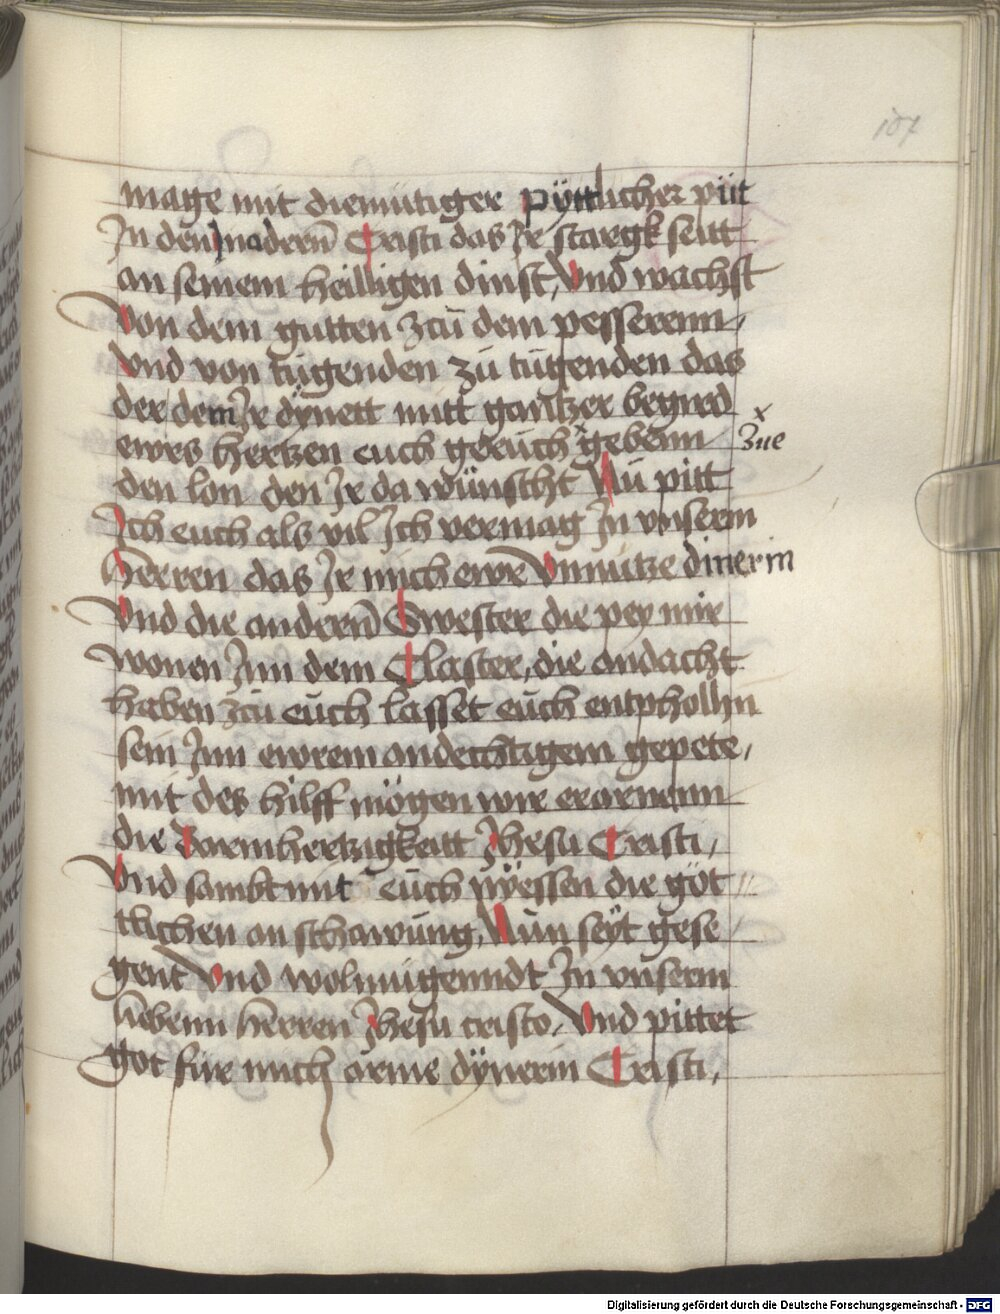 107
mage mit diemütiger pyttlicher piit
In den Inadern̄ Cristi das Ir stargk seitt
an seinem heilligen dinst, Vnd wachst
Von dem gutten zcu dem pesserenn,
Vnd von tugenden zu tugenden das
der dem Ir dÿnett mitt gantzer begird
ewrs hertzen euch geruch x gebenn
x zue
den lon den Ir da wünscht Nü pitt
Ich euch als vil Ich vermag In vnserm
herren das Ir mich ewr Vnnütze dinerin
Vnd die andern̄ Swester die pey mir
wonen Inn dem Claster, die andacht
haben zcu euch lasset euch entpholhn
sein Inn ewrem andechtigem gepete,
mit des hilff mögen wir erarnenn
die Barmhertzigkeitt Jhesu Cristi,
Vnd sambt mit euch nÿessen die göt
tlichen anschawung, Nun seÿt gese
gent Vnd wolmügenndt In vnserm
liebenn herren Jhesu cristo, Vnd pittet
got für mich arme dÿnerin Cristi,
Digitalisierung gefördert durch die Deutsche Forschungsgemeinschaft - DFG